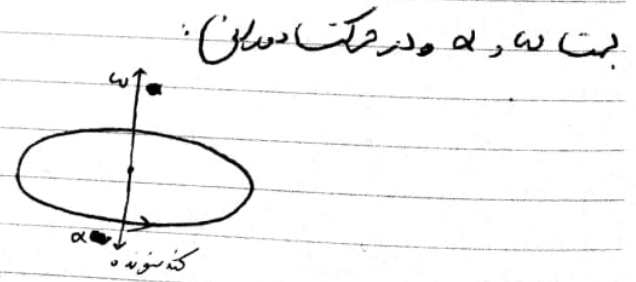 جهت ω و α در حرکت دورانی:
ω
α
کند شونده